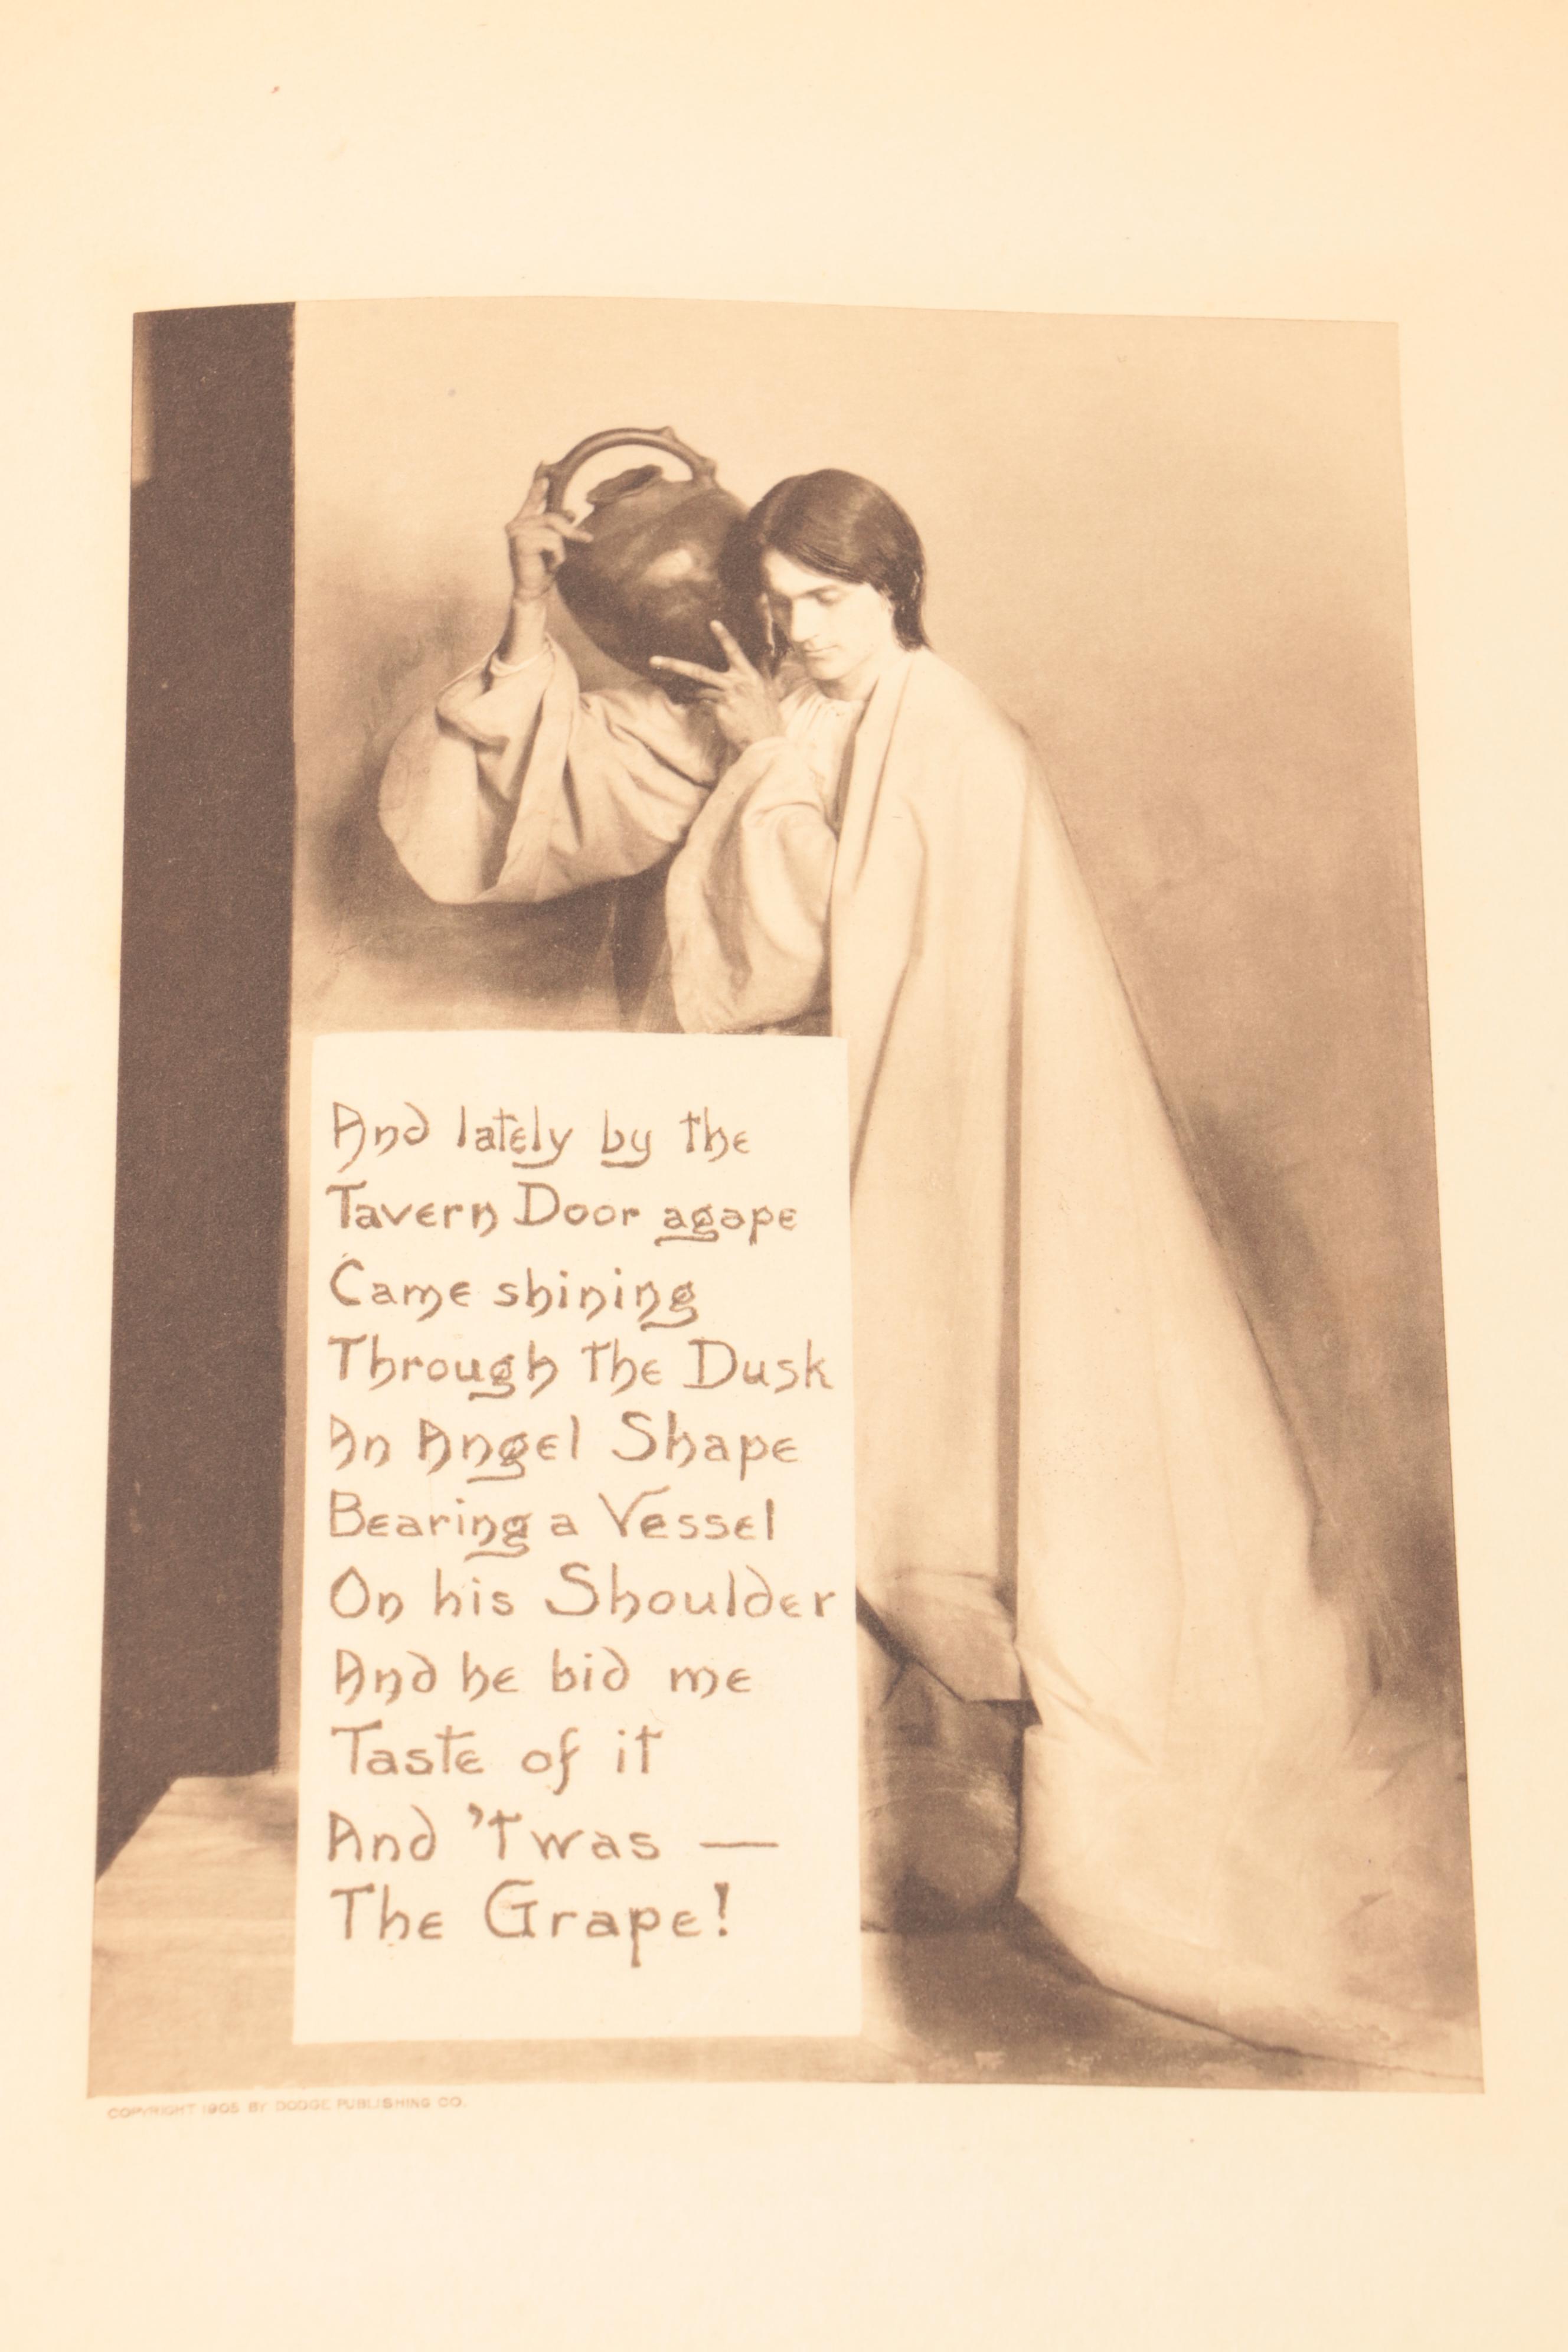 And lately by the
Tavern Door agape
Came shining
Through the Dusk
An Angel Shape
Bearing a Vessel
On his Shoulder
And he bid me
Taste of it
And 'Twas —
The Grape!
COPYRIGHT 1905 BY DODGE PUBLISHING CO.